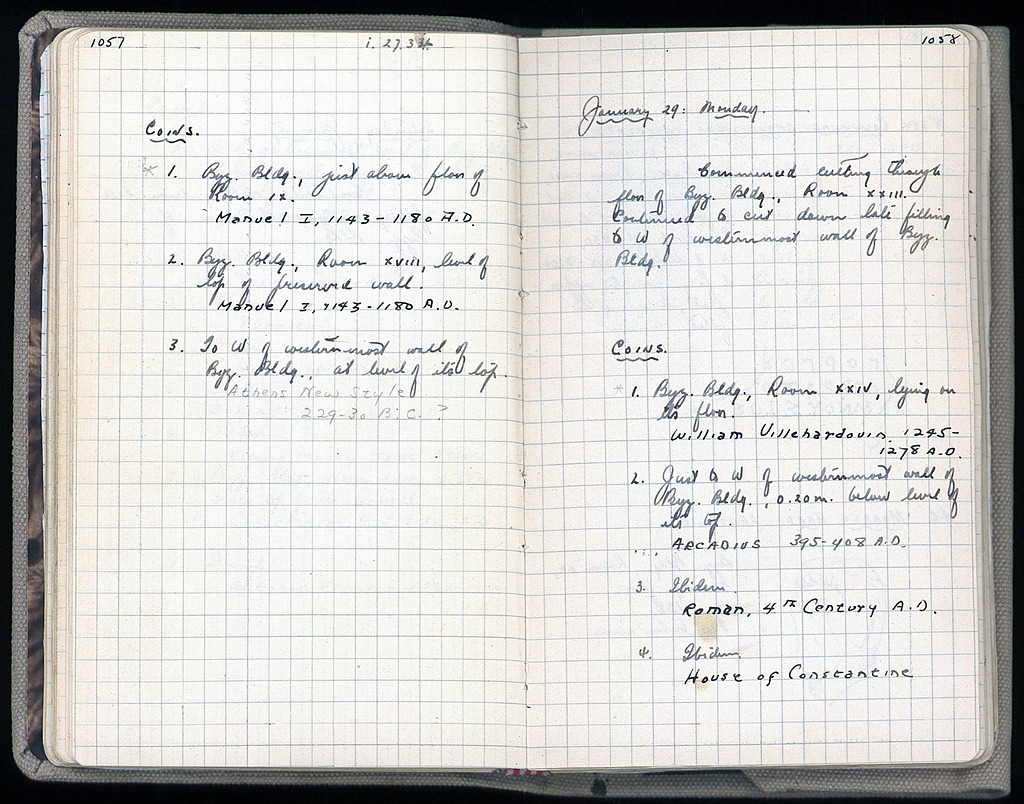 1057
i. 27.34
Coins.
* 1. Byz. Bldg., just above floor of
Room IX.
Manuel I, 1143-1180 A.D.
2. Byz. Bldg., Room XVIII, level of
top of preserved wall.
Manuel I, 1143-1180 A.D.
3. To W of westernmost wall of
Byz. Bldg., at level of its top.
Athens New Style
229-30 B.C. ?
1058
January 29: Monday.
Commenced cutting through
floor of Byz. Bldg., Room XXIII.
Continued to cut down late filling
to W of westernmost wall of Byz.
Bldg.
Coins.
* 1. Byz. Bldg., Room XXIV, lying on
its floor.
William Villehardouin, 1245-
1278 A.D.
2. Just to W of westernmost wall of
Byz. Bldg., 0.20 m. below level of
its top.
ARCADIUS 395-408 A.D.
3. Ibidem
Roman, 4th Century A.D.
4. Ibidem
House of Constantine